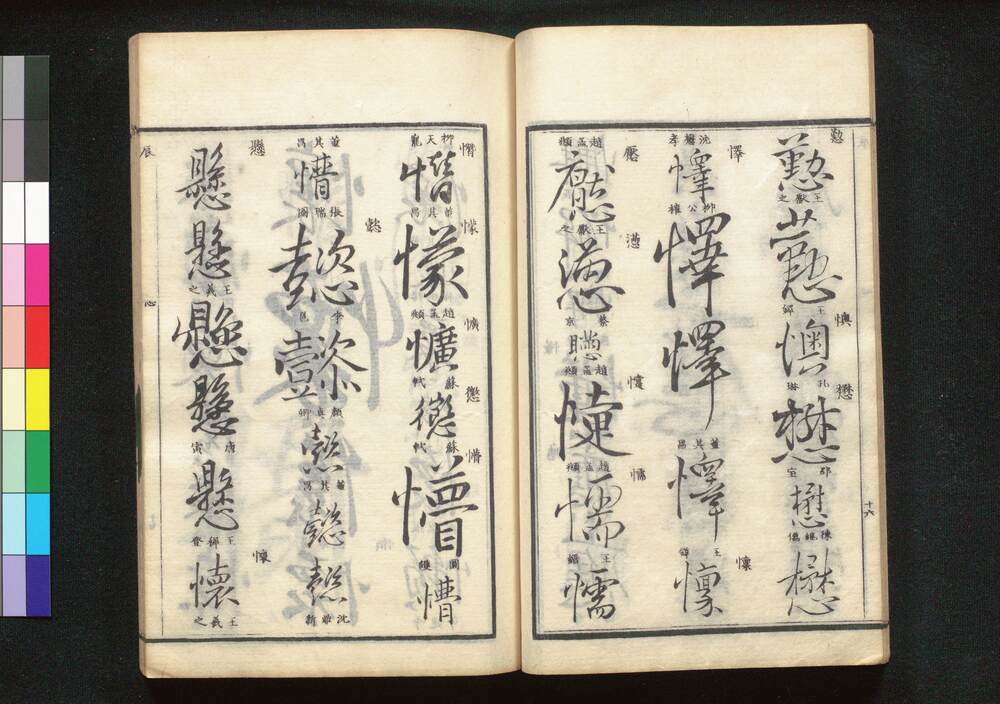 懃
懃
王獻之
懃
王鐸
懊
懊
孔琳
懋
懋
邵宝
懋
懋
懌
懌
柳公權
懌
懌
董其昌
懌
王鐸
懍
懍
趙孟頫
懕
懕
王獻之
懣
懣
蔡京
懣
趙孟頫
趙孟頫
懦
懦
懦
十六
董其昌
懞
懞
趙孟頫
懭
懭
蘇軾
懲
懲
蘇軾
懵
懵
懵
董其昌
懵
張瑞圖
懿
懿
李邕
懿
顏真卿
懿
董其昌
懿
懿
懸
懸
懸
王羲之
懸
懸
唐寅
懸
王穉登
懷
懷
王羲之
辰
心